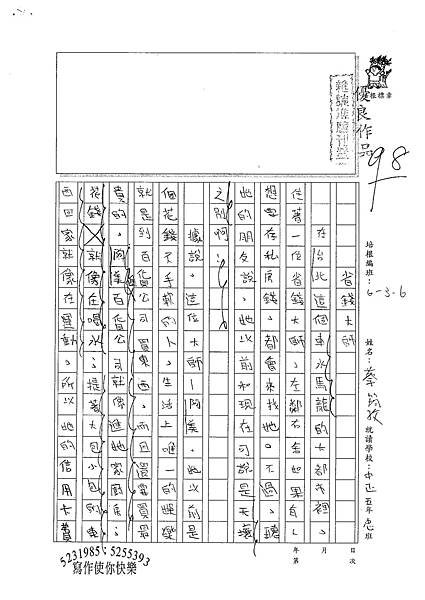 優良作品
98
培根編班：6-3.6
姓名：蔡
就讀學校：中正五年忠班
省錢大師
在台北這個車水馬龍的大都市裡，
住著一位省錢大師，左鄰右舍如果有人
想要存私房錢，都會來找她。不過，聽
她的朋友說，她以前和現在可說是天壤
之別啊……
據說，這位大師—阿美，她以前是
個花錢不手軟的人，生活上唯一的娛樂
就是到百貨公司買東西，而且還需買最
貴的，阿美進百貨公司就像進她家廚房；
花錢就像在喝水；提著大包小包的東
西回家就像在運動，所以她的信用卡費
年 月 日
第 次
5231985；5255393
寫作使你快樂